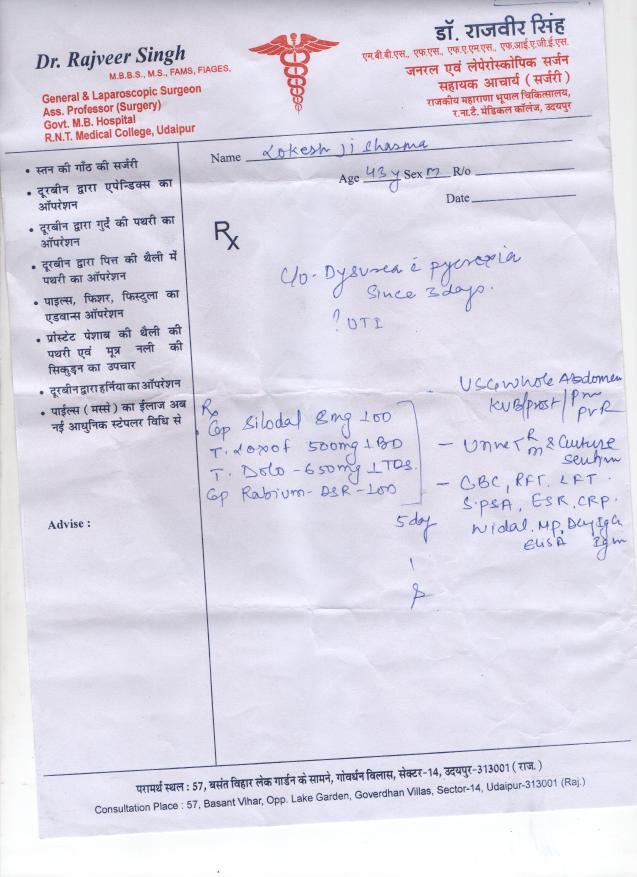 Dr. Rajveer Singh
M.B.B.S., M.S., FAMS, FIAGES.
General & Laparoscopic Surgeon
Ass. Professor (Surgery)
Govt. M.B. Hospital
R.N.T. Medical College, Udaipur
डॉ. राजवीर सिंह
एम.बी.बी.एस., एफ.एस., एफ.ए.एम.एस., एफ.आई.ए.जी.ई.एस.
जनरल एवं लेपेरोस्कोपिक सर्जन
सहायक आचार्य (सर्जरी)
राजकीय महाराणा भूपाल चिकित्सालय,
र.ना.टै. मेडिकल कॉलेज, उदयपुर
• स्तन की गाँठ की सर्जरी
• दूरबीन द्वारा एपेन्डिक्स का
ऑपरेशन
• दूरबीन द्वारा गुर्दे की पथरी का
ऑपरेशन
• दूरबीन द्वारा पित्त की थैली में
पथरी का ऑपरेशन
• पाइल्स, फिशर, फिस्टुला का
एडवान्स ऑपरेशन
• प्रोस्टेट पेशाब की थैली की
पथरी एवं मूत्र नली की
सिकुड़न का उपचार
• दूरबीन द्वारा हर्निया का ऑपरेशन
• पाईल्स (मस्से) का ईलाज अब
नई आधुनिक स्टेपलर विधि से
Advise :
Name Lokesh Ji Sharma
Age 43 y Sex M R/o
Date
Rx
C/o - Dysurea c̄ pyrexia
Since 3 days.
? UTI
Rx
Cap Silodal 8mg 1 OD
T. Loxof 500mg 1 BD
T. Dolo - 650mg 1 TDS
Cap Rabium - DSR - 1 OD
5 day
- USG whole Abdomen
KUB/prost/Pre
PVR
- Urine R/M & Culture
- CBC, RFT. LFT.
S.PSA, ESR, CRP.
Widal, MP, IgG
ELISA IgM
परामर्श स्थल : 57, बसंत विहार लेक गार्डन के सामने, गोवर्धन विलास, सेक्टर-14, उदयपुर-313001 ( राज. )
Consultation Place : 57, Basant Vihar, Opp. Lake Garden, Goverdhan Villas, Sector-14, Udaipur-313001 (Raj.)